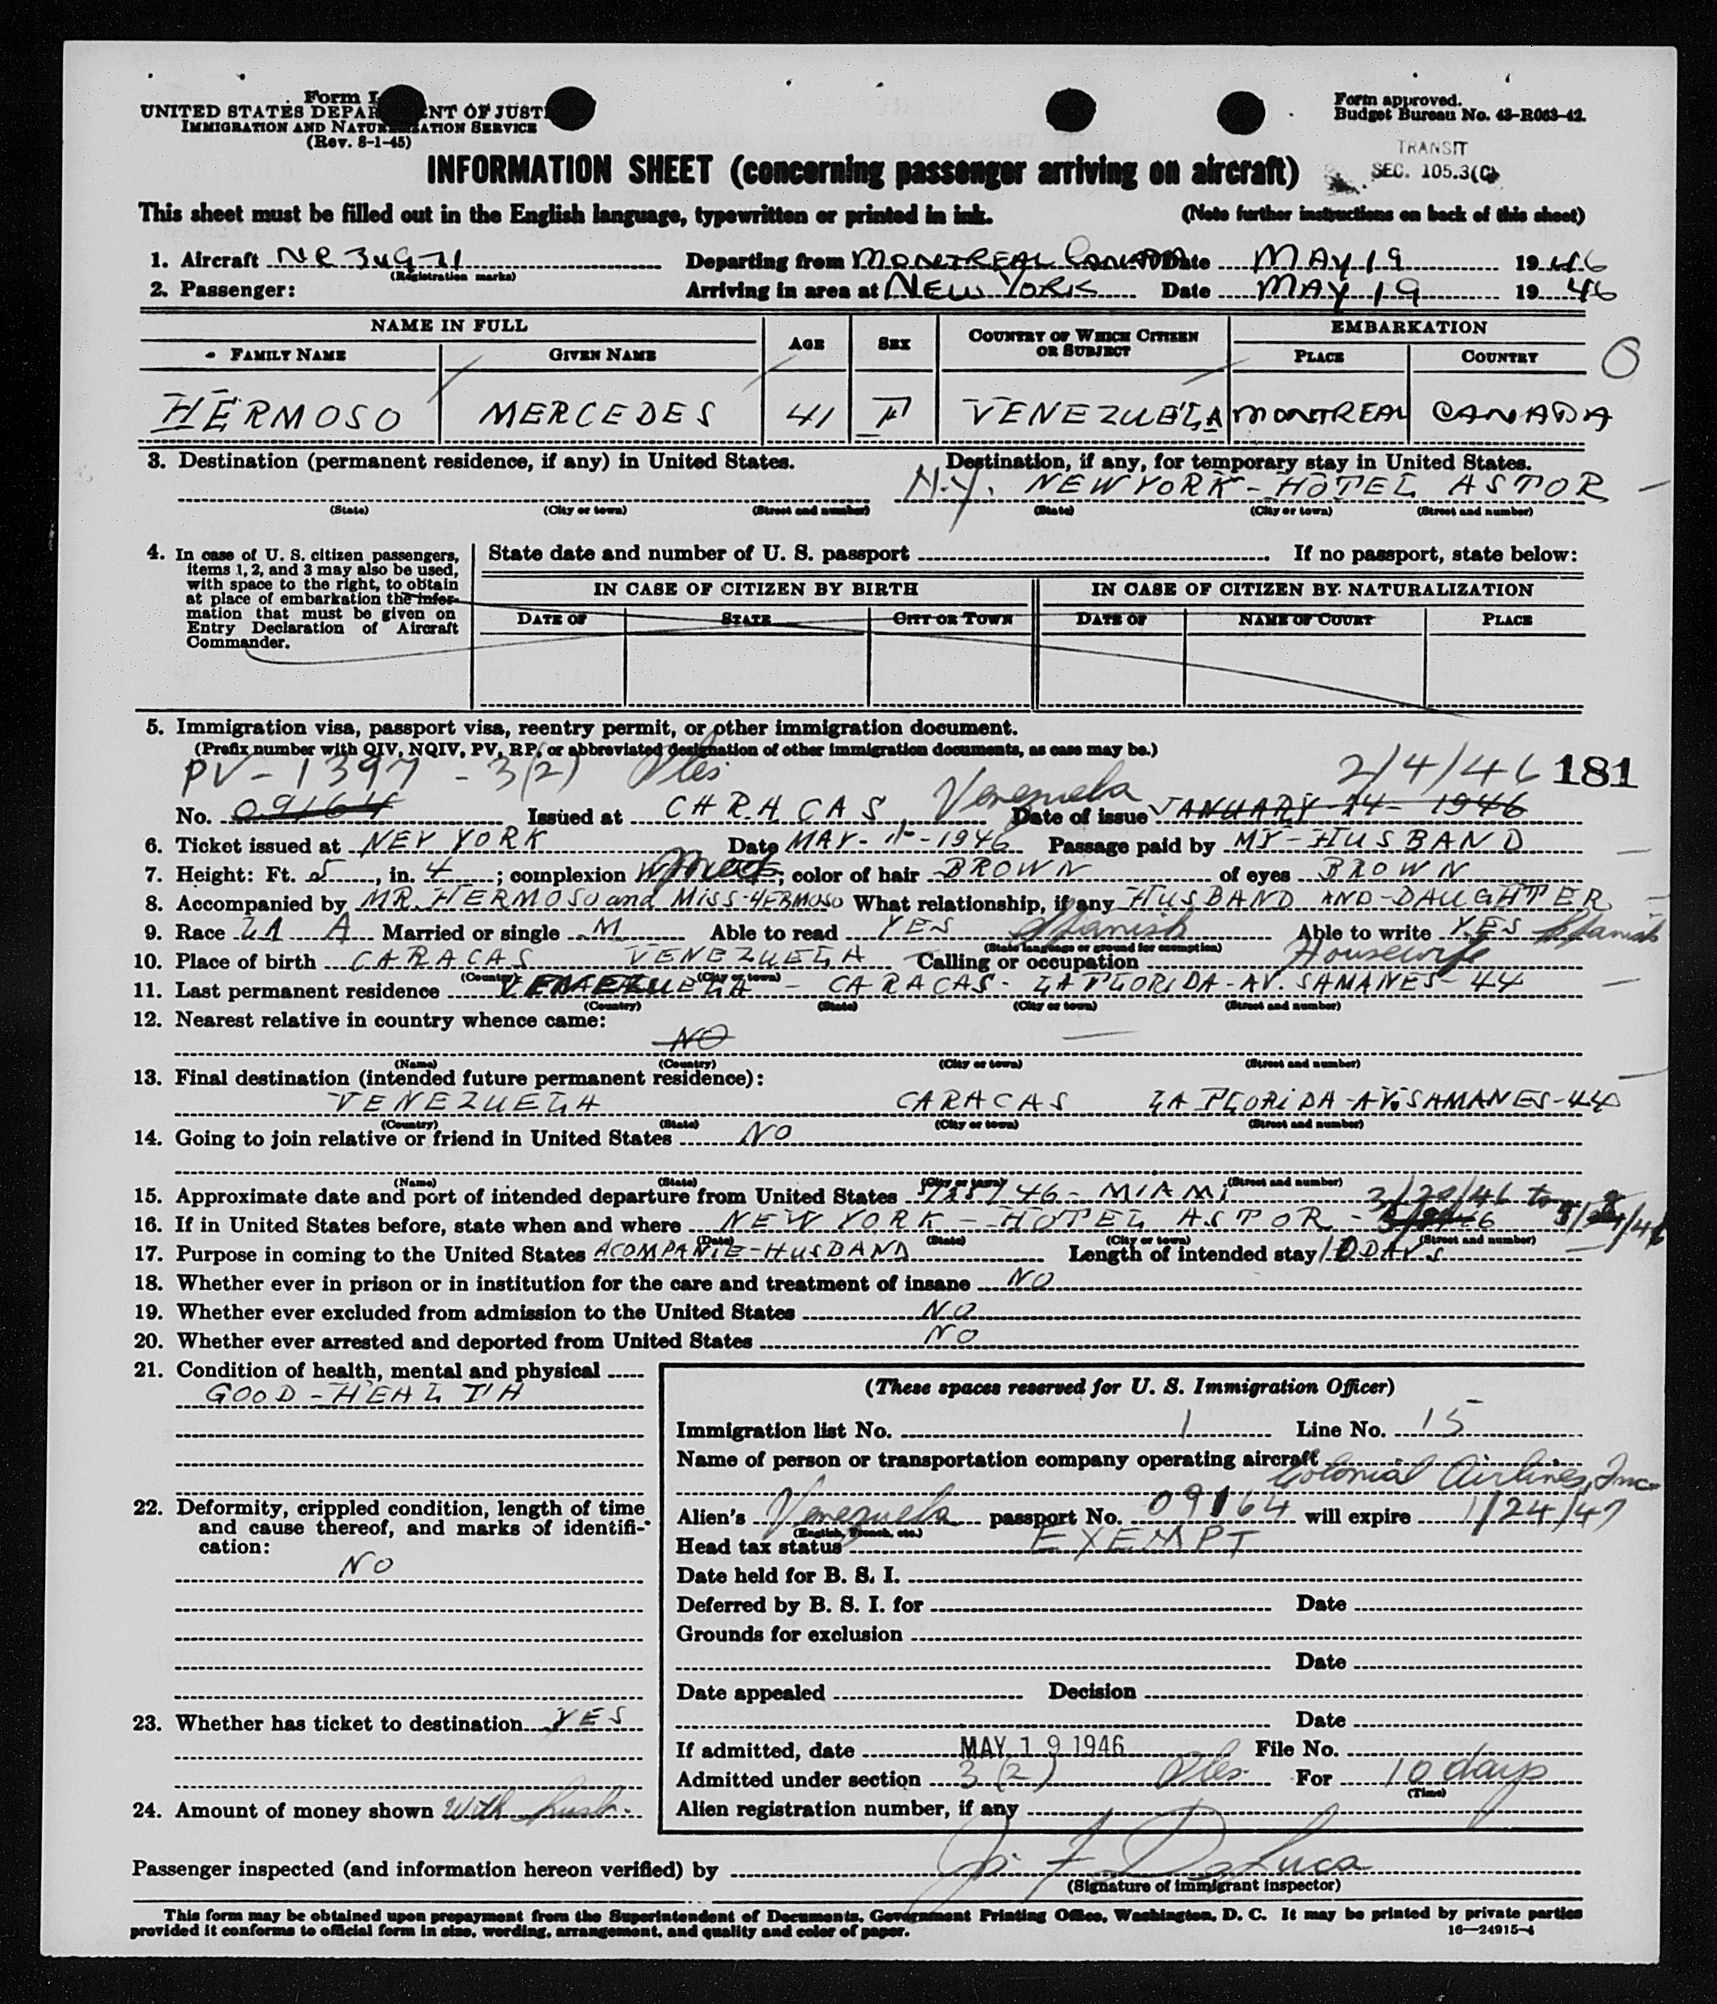 Form I
UNITED STATES DEPAR ENT OF JUST
IMMIGRATION AND NATURALIZATION SERVICE
(Rev. 8-1-45)
Form approved.
Budget Bureau No. 43-R063-42.
TRANSIT
SEC. 105.3(C)
INFORMATION SHEET (concerning passenger arriving on aircraft)
This sheet must be filled out in the English language, typewritten or printed in ink. (Note further instructions on back of this sheet)
1. Aircraft (Registration marks) Departing from MONTREAL CANADA Date MAY 19 1946
2. Passenger: Arriving in area at NEW YORK Date MAY 19 1946
NAME IN FULL EMBARKATION
FAMILY NAME GIVEN NAME AGE SEX COUNTRY OF WHICH CITIZEN OR SUBJECT PLACE COUNTRY
HERMOSO MERCEDES 41 F VENEZUELA MONTREAL CANADA
3. Destination (permanent residence, if any) in United States. Destination, if any, for temporary stay in United States.
N.Y. NEW YORK - HOTEL ASTOR
(State) (City or town) (Street and number) (State) (City or town) (Street and number)
4. In case of U. S. citizen passengers, items 1, 2, and 3 may also be used, with space to the right, to obtain at place of embarkation the information that must be given on Entry Declaration of Aircraft Commander.
State date and number of U. S. passport If no passport, state below:
IN CASE OF CITIZEN BY BIRTH IN CASE OF CITIZEN BY NATURALIZATION
DATE OF STATE CITY OR TOWN DATE OF NAME OF COURT PLACE
5. Immigration visa, passport visa, reentry permit, or other immigration document.
(Prefix number with QIV, NQIV, PV, RP, or abbreviated designation of other immigration documents, as case may be.)
PV - 1397 - 3(2) 2/4/46 181
No. 09164 Issued at CARACAS, Venezuela Date of issue JANUARY 24 - 1946
6. Ticket issued at NEY YORK Date MAY - 11 - 1946 Passage paid by MY - HUSBAND
7. Height: Ft. 5, in. 4; complexion; color of hair BROWN of eyes BROWN
8. Accompanied by MR. HERMOSO and MISS HERMOSO What relationship, if any HUSBAND AND - DAUGHTER
9. Race LA A Married or single M Able to read YES Spanish Able to write YES Spanish
(State language or ground for exemption)
10. Place of birth CARACAS VENEZUELA Calling or occupation Housewife
(Country) (City or town)
11. Last permanent residence VENEZUELA - CARACAS - LA FLORIDA - AV. SAMANES - 44
(Country) (State) (City or town) (Street and number)
12. Nearest relative in country whence came:
NO
(Name) (Country) (City or town) (Street and number)
13. Final destination (intended future permanent residence):
VENEZUELA CARACAS LA FLORIDA - AV. SAMANES - 44
(Country) (State) (City or town) (Street and number)
14. Going to join relative or friend in United States NO
(Name) (State) (City or town) (Street and number)
15. Approximate date and port of intended departure from United States 46 - MIAMI 3/20/46 to
16. If in United States before, state when and where NEW YORK - HOTEL ASTOR
(Date) (State) (City or town) (Street and number)
17. Purpose in coming to the United States ACOMPANIE - HUSBAND Length of intended stay 10 DAYS
18. Whether ever in prison or in institution for the care and treatment of insane NO
19. Whether ever excluded from admission to the United States NO
20. Whether ever arrested and deported from United States NO
21. Condition of health, mental and physical
GOOD - HEALTH
22. Deformity, crippled condition, length of time and cause thereof, and marks of identification:
NO
23. Whether has ticket to destination YES
24. Amount of money shown with husb.
(These spaces reserved for U. S. Immigration Officer)
Immigration list No. 1 Line No. 15
Name of person or transportation company operating aircraft
Colonial Airlines, Inc.
Alien's Venezuela passport No. 09164 will expire 1/24/47
(English, French, etc.)
Head tax status EXEMPT
Date held for B. S. I.
Deferred by B. S. I. for Date
Grounds for exclusion
Date
Date appealed Decision
Date
If admitted, date MAY 19 1946 File No.
Admitted under section 3(2) For 10 days
(Time)
Alien registration number, if any
Passenger inspected (and information hereon verified) by J. F. DeLuca
(Signature of immigrant inspector)
This form may be obtained upon prepayment from the Superintendent of Documents, Government Printing Office, Washington, D. C. It may be printed by private parties
provided it conforms to official form in size, wording, arrangement, and quality and color of paper. 16—24915-4